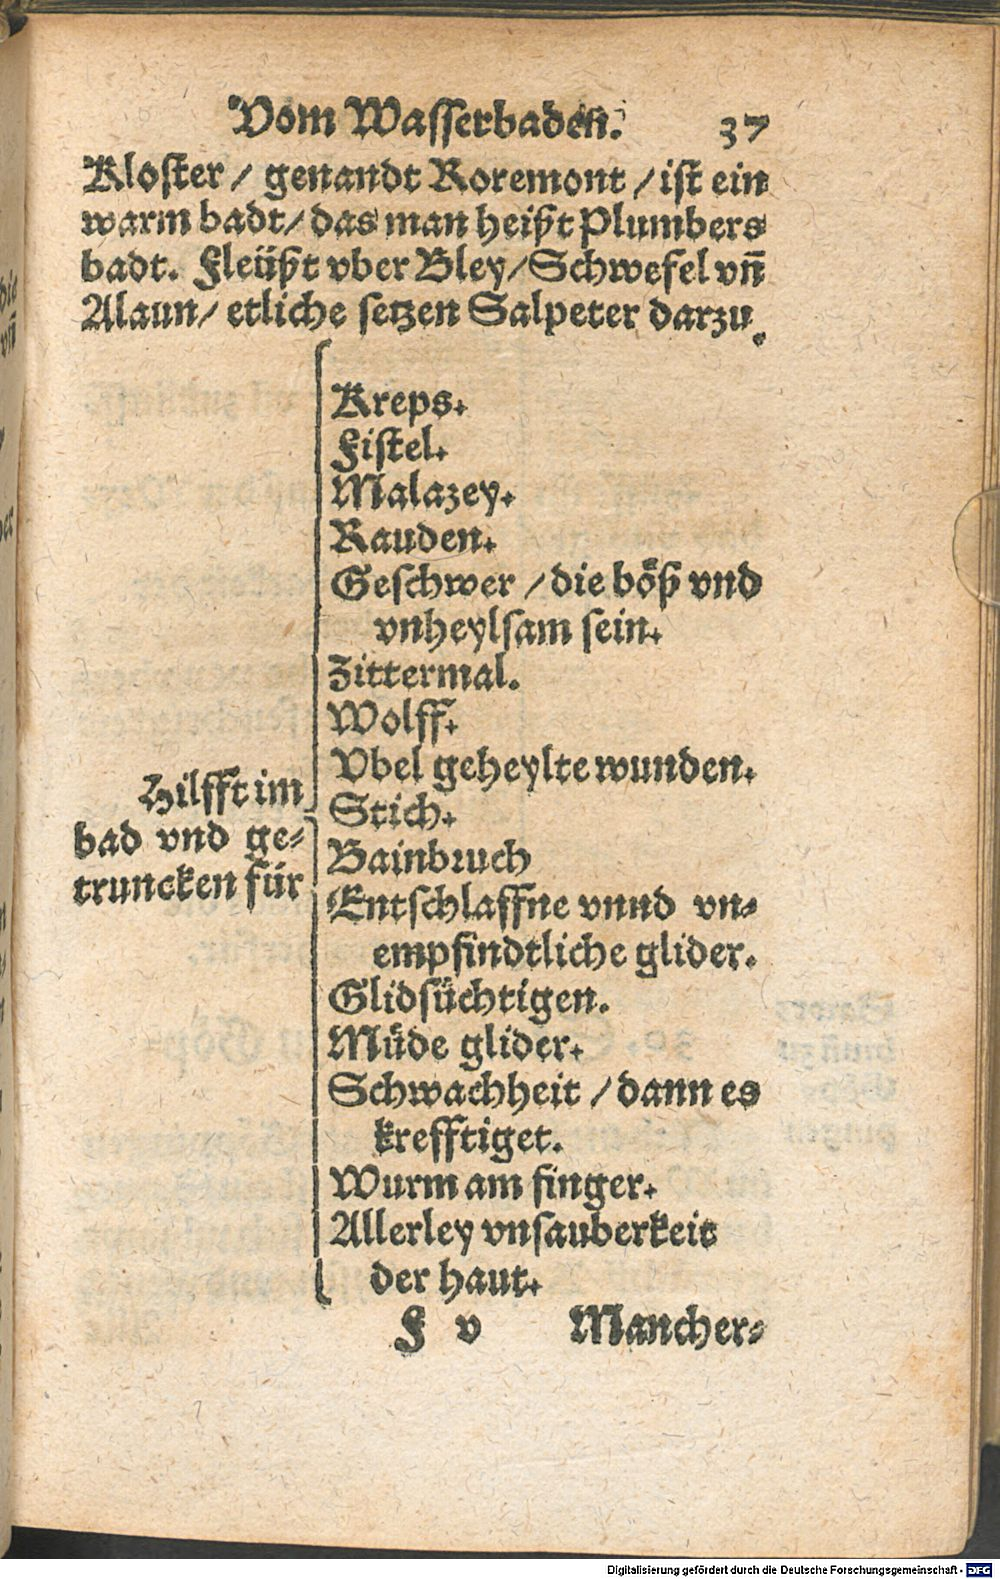 Vom Wasserbaden. 37
Kloster / genandt Roremont / ist ein
warm badt / das man heißt Plumbers
badt. Fleüßt vber Bley / Schwefel vñ
Alaun / etliche setzen Salpeter darzu.
Hilfft im
bad vnd ge-
truncken für
Kreps.
Fistel.
Malazey.
Rauden.
Geschwer / die böß vnd
vnheylsam sein.
Zittermal.
Wolff.
Vbel geheylte wunden.
Stich.
Bainbruch
Entschlaffne vnnd vn-
empfindtliche glider.
Glidsüchtigen.
Müde glider.
Schwachheit / dann es
krefftiget.
Wurm am finger.
Allerley vnsauberkeit
der haut.
F v Mancher-
Digitalisierung gefördert durch die Deutsche Forschungsgemeinschaft - DFG